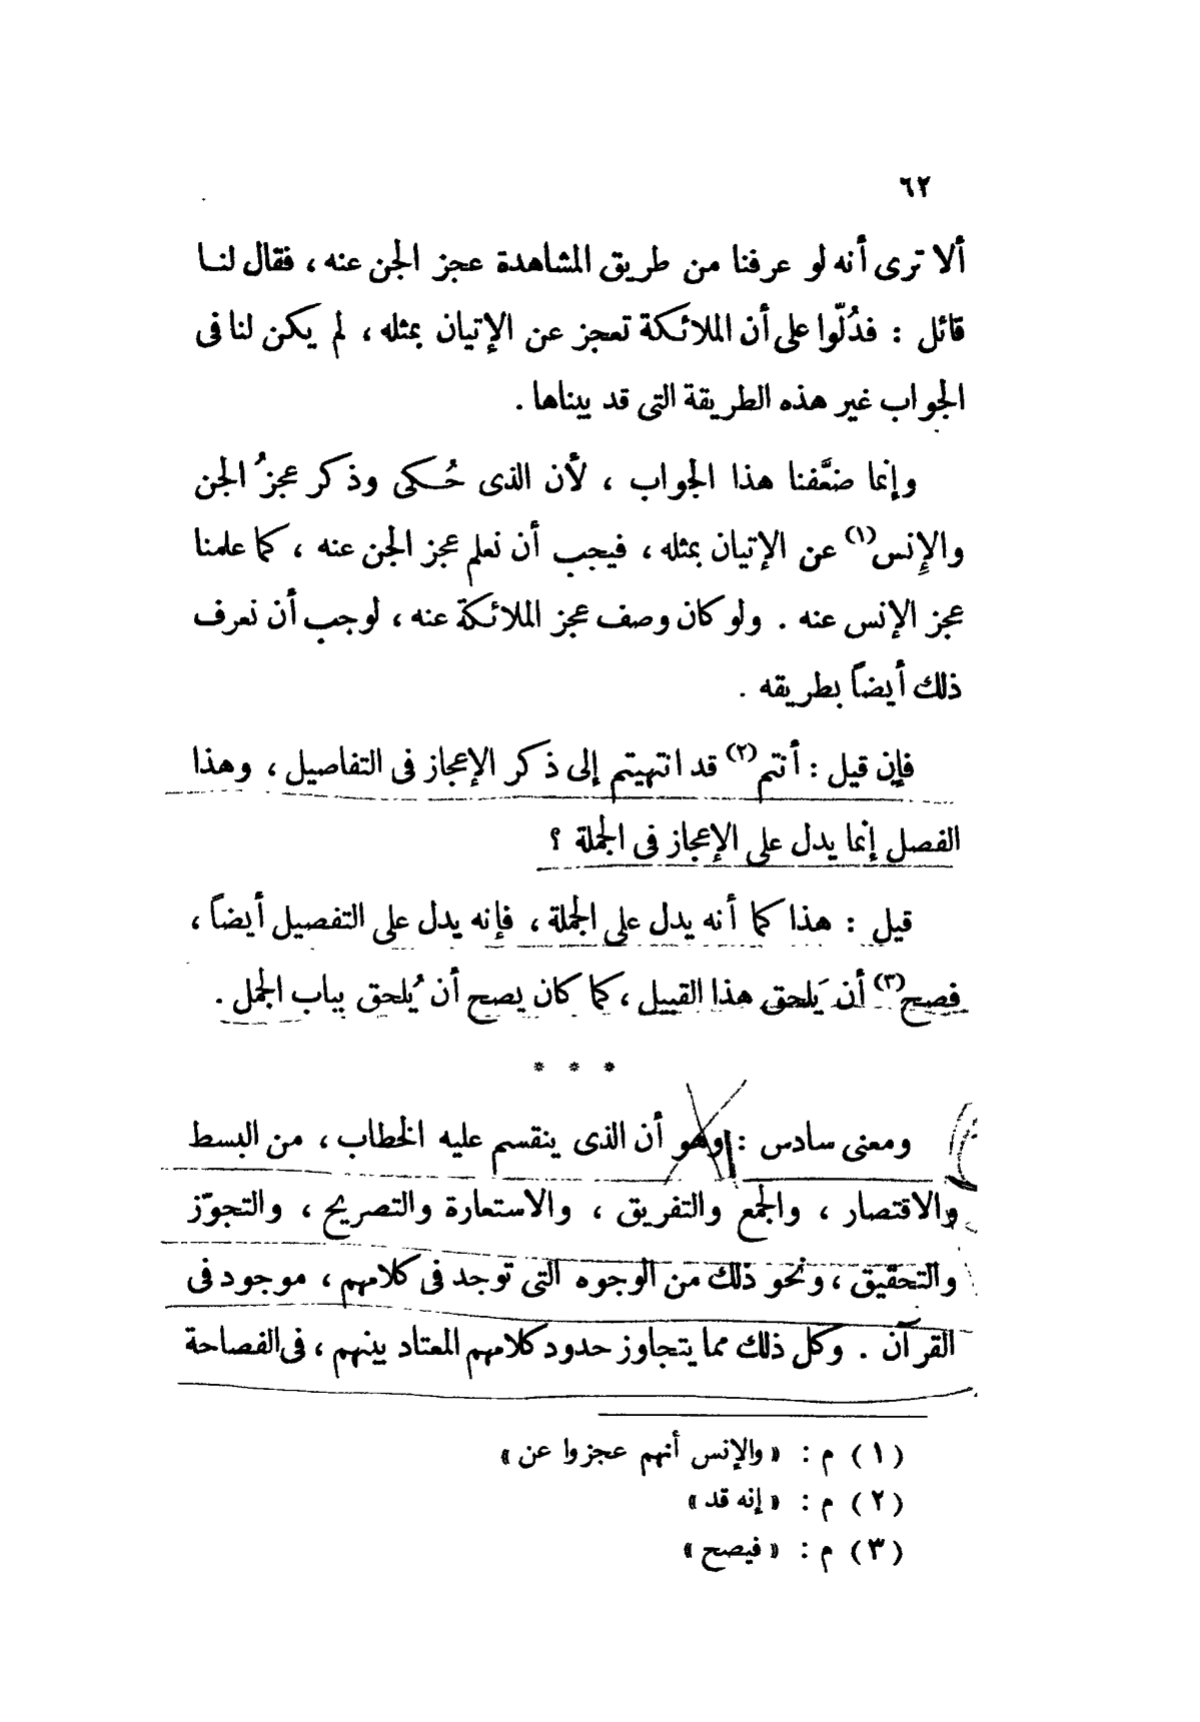 ٦٢
ألا ترى أنه لو عرفنا من طريق المشاهدة عجز الجن عنه ، فقال لنا
قائل : فدُلّوا على أن الملائكة تعجز عن الإتيان بمثله ، لم يكن لنا فى
الجواب غير هذه الطريقة التى قد بيناها .
وإنما ضعَّفنا هذا الجواب ، لأن الذى حُكى وذكر عجزُ الجن
والإِنس(١) عن الإتيان بمثله ، فيجب أن نعلم عجز الجن عنه ، كما علمنا
عجز الإنس عنه . ولو كان وصف عجز الملائكة عنه ، لوجب أن نعرف
ذلك أيضاً بطريقه .
فإن قيل : أنتم(٢) قد انتهيتم إلى ذكر الإعجاز فى التفاصيل ، وهذا
الفصل إنما يدل على الإعجاز فى الجملة ؟
قيل : هذا كما أنه يدل على الجملة ، فإنه يدل على التفصيل أيضاً ،
فصح(٣) أن يَلحق هذا القبيل ، كما كان يصح أن يُلحق بباب الجمل .
* * *
ومعنى سادس : وهو أن الذى ينقسم عليه الخطاب ، من البسط
والاقتصار ، والجمع والتفريق ، والاستعارة والتصريح ، والتجوّز
والتحقيق ، ونحو ذلك من الوجوه التى توجد فى كلامهم ، موجود فى
القرآن . وكل ذلك مما يتجاوز حدود كلامهم المعتاد بينهم ، فى الفصاحة
(١) م : « والإنس أنهم عجزوا عن »
(٢) م : « إنه قد »
(٣) م : « فيصح »